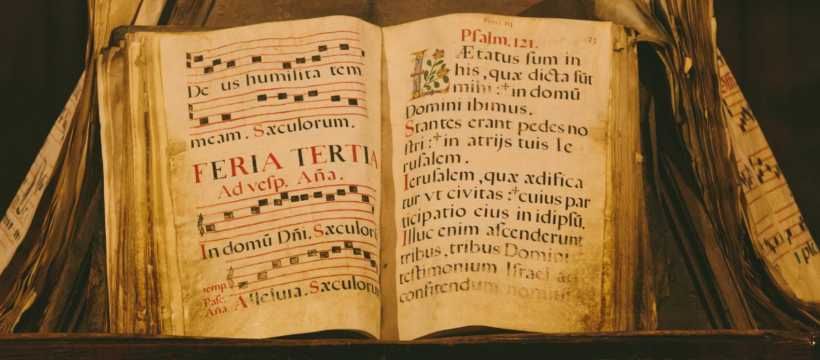 De us humilita tem
meam. Sæculorum.
FERIA TERTIA
Ad vesp. Aña.
In domū Dñi. Sæculor
temp.
Pasc.
Aña. Alleluia. Sæculorum
Psalm. 121.
LÆtatus sum in
his, quæ dicta sūt
mihi :† in domū
Domini ibimus.
Stantes erant pedes no
stri :† in atrijs tuis Ie
rusalem.
Ierusalem, quæ ædifica
tur vt civitas :† cuius par
ticipatio eius in idipsū.
Illuc enim ascenderunt
tribus, tribus Domini
testimonium Israel ad
confitendum nomini